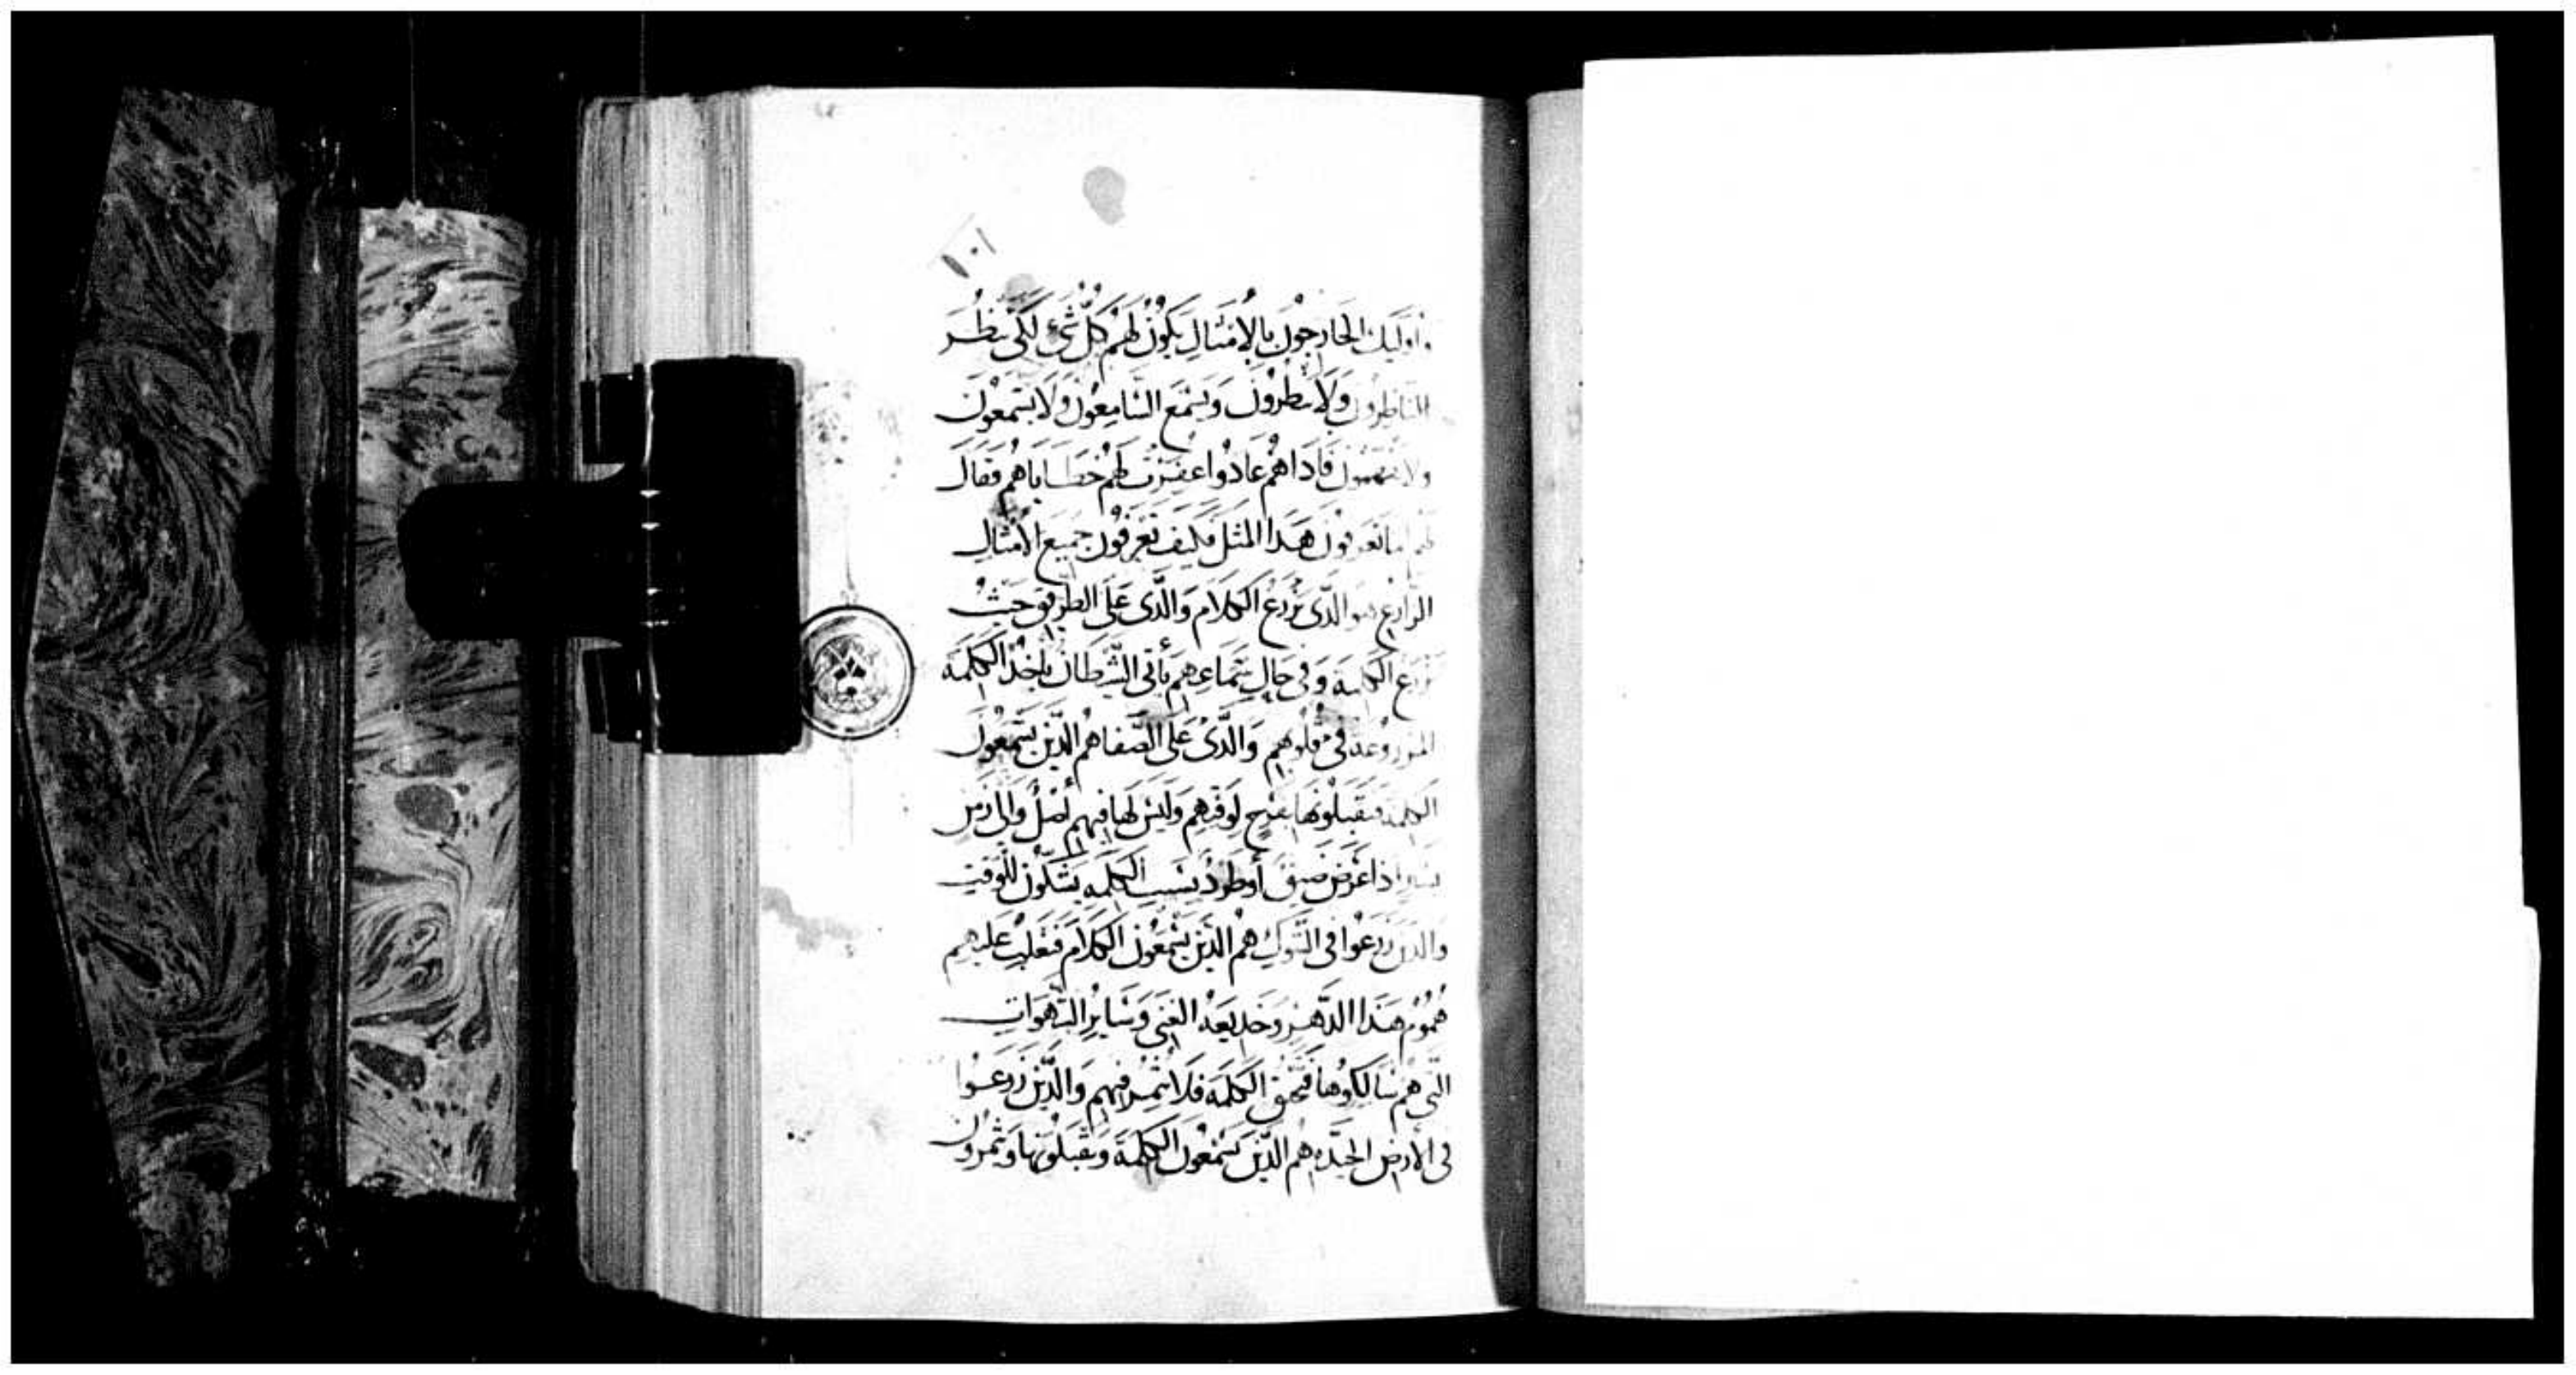 ١٠١
واوليك الخارجون بالامثال يكون لهم كل شي لكى ينظر
الناظرون ولا ينظرون ويسمع السامعون ولا يسمعون
ولا يفهمون فاداهم عادوا اغفرت لهم خطاياهم فقال
لهم اما تعرفون هدا المثل فكيف تعرفون جميع الامثال
الزارع هو الدى يزرع الكلام والدى على الطريق حيث
تزرع الكلمة وفى حال سماعهم يأتى الشيطان ياخد الكلمه
المزروعة فى قلوبهم والدى على الصفاهم الدين يسمعون
الكلمة فيقبلونها بفرح لوقتهم وليس لها فيهم اصل والى زمن
يسير اذا عرض ضيق أو طرد بسبب الكلمه يشكون للوقت
والدين زرعوا فى الشوك هم الدين يسمعون الكلام فتغلب عليهم
هموم هدا الدهر وخديعه الغنى وساير الشهوات
التى هم سالكوها فتخنق الكلمه فلا تثمر فيهم والدين زرعوا
فى الارض الجيده هم الدين يسمعون الكلمة ويقبلونها ويثمرون